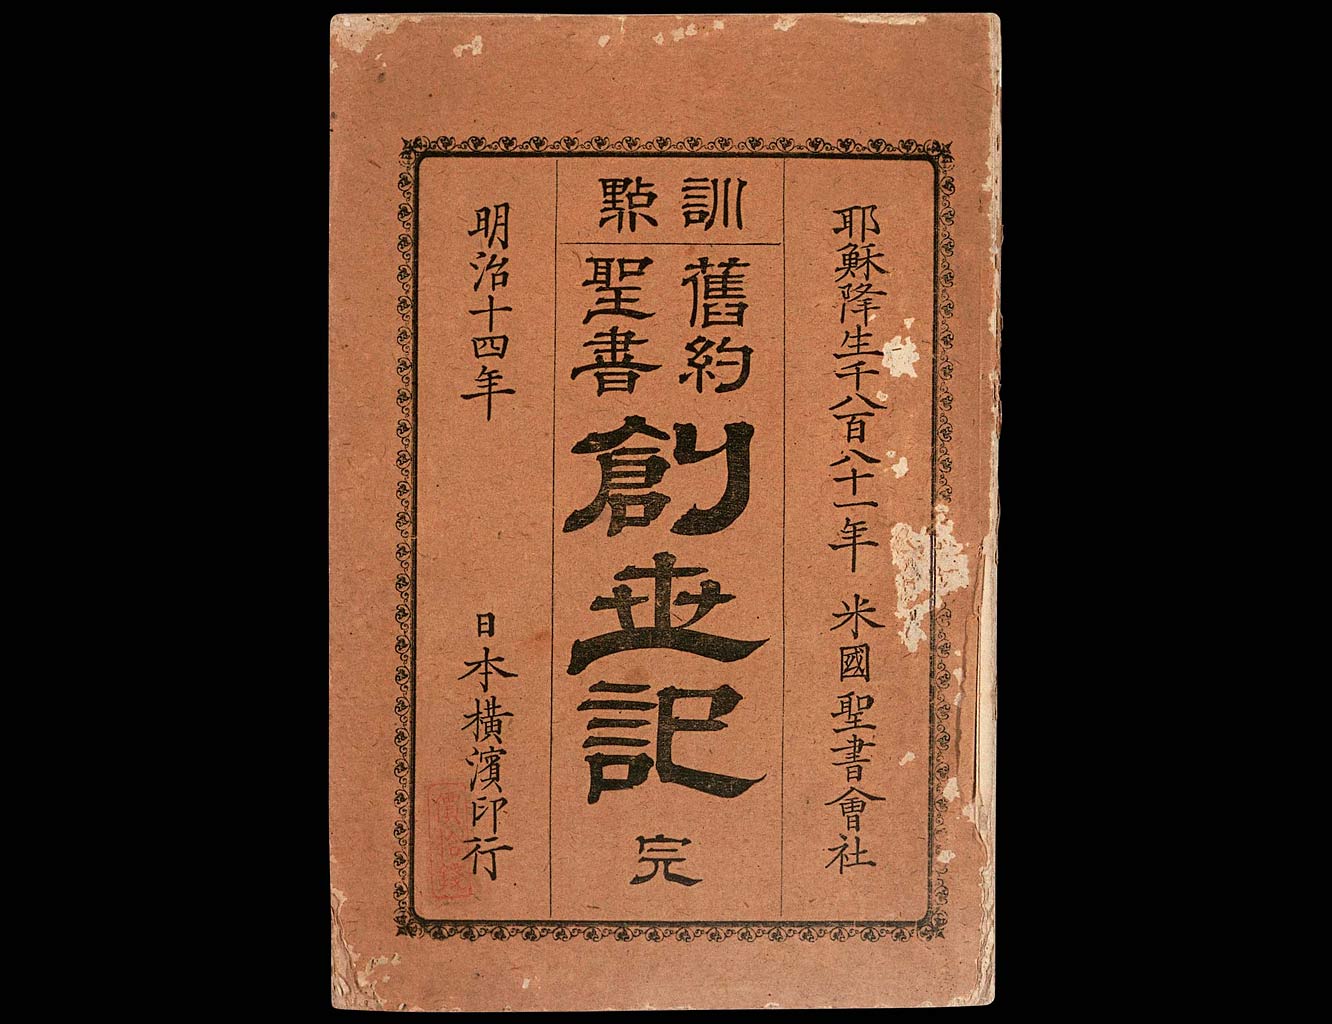 耶穌降生千八百八十一年 米國聖書會社
訓點
舊約
聖書
創世記 完
明治十四年 日本橫濱印行
價拾錢